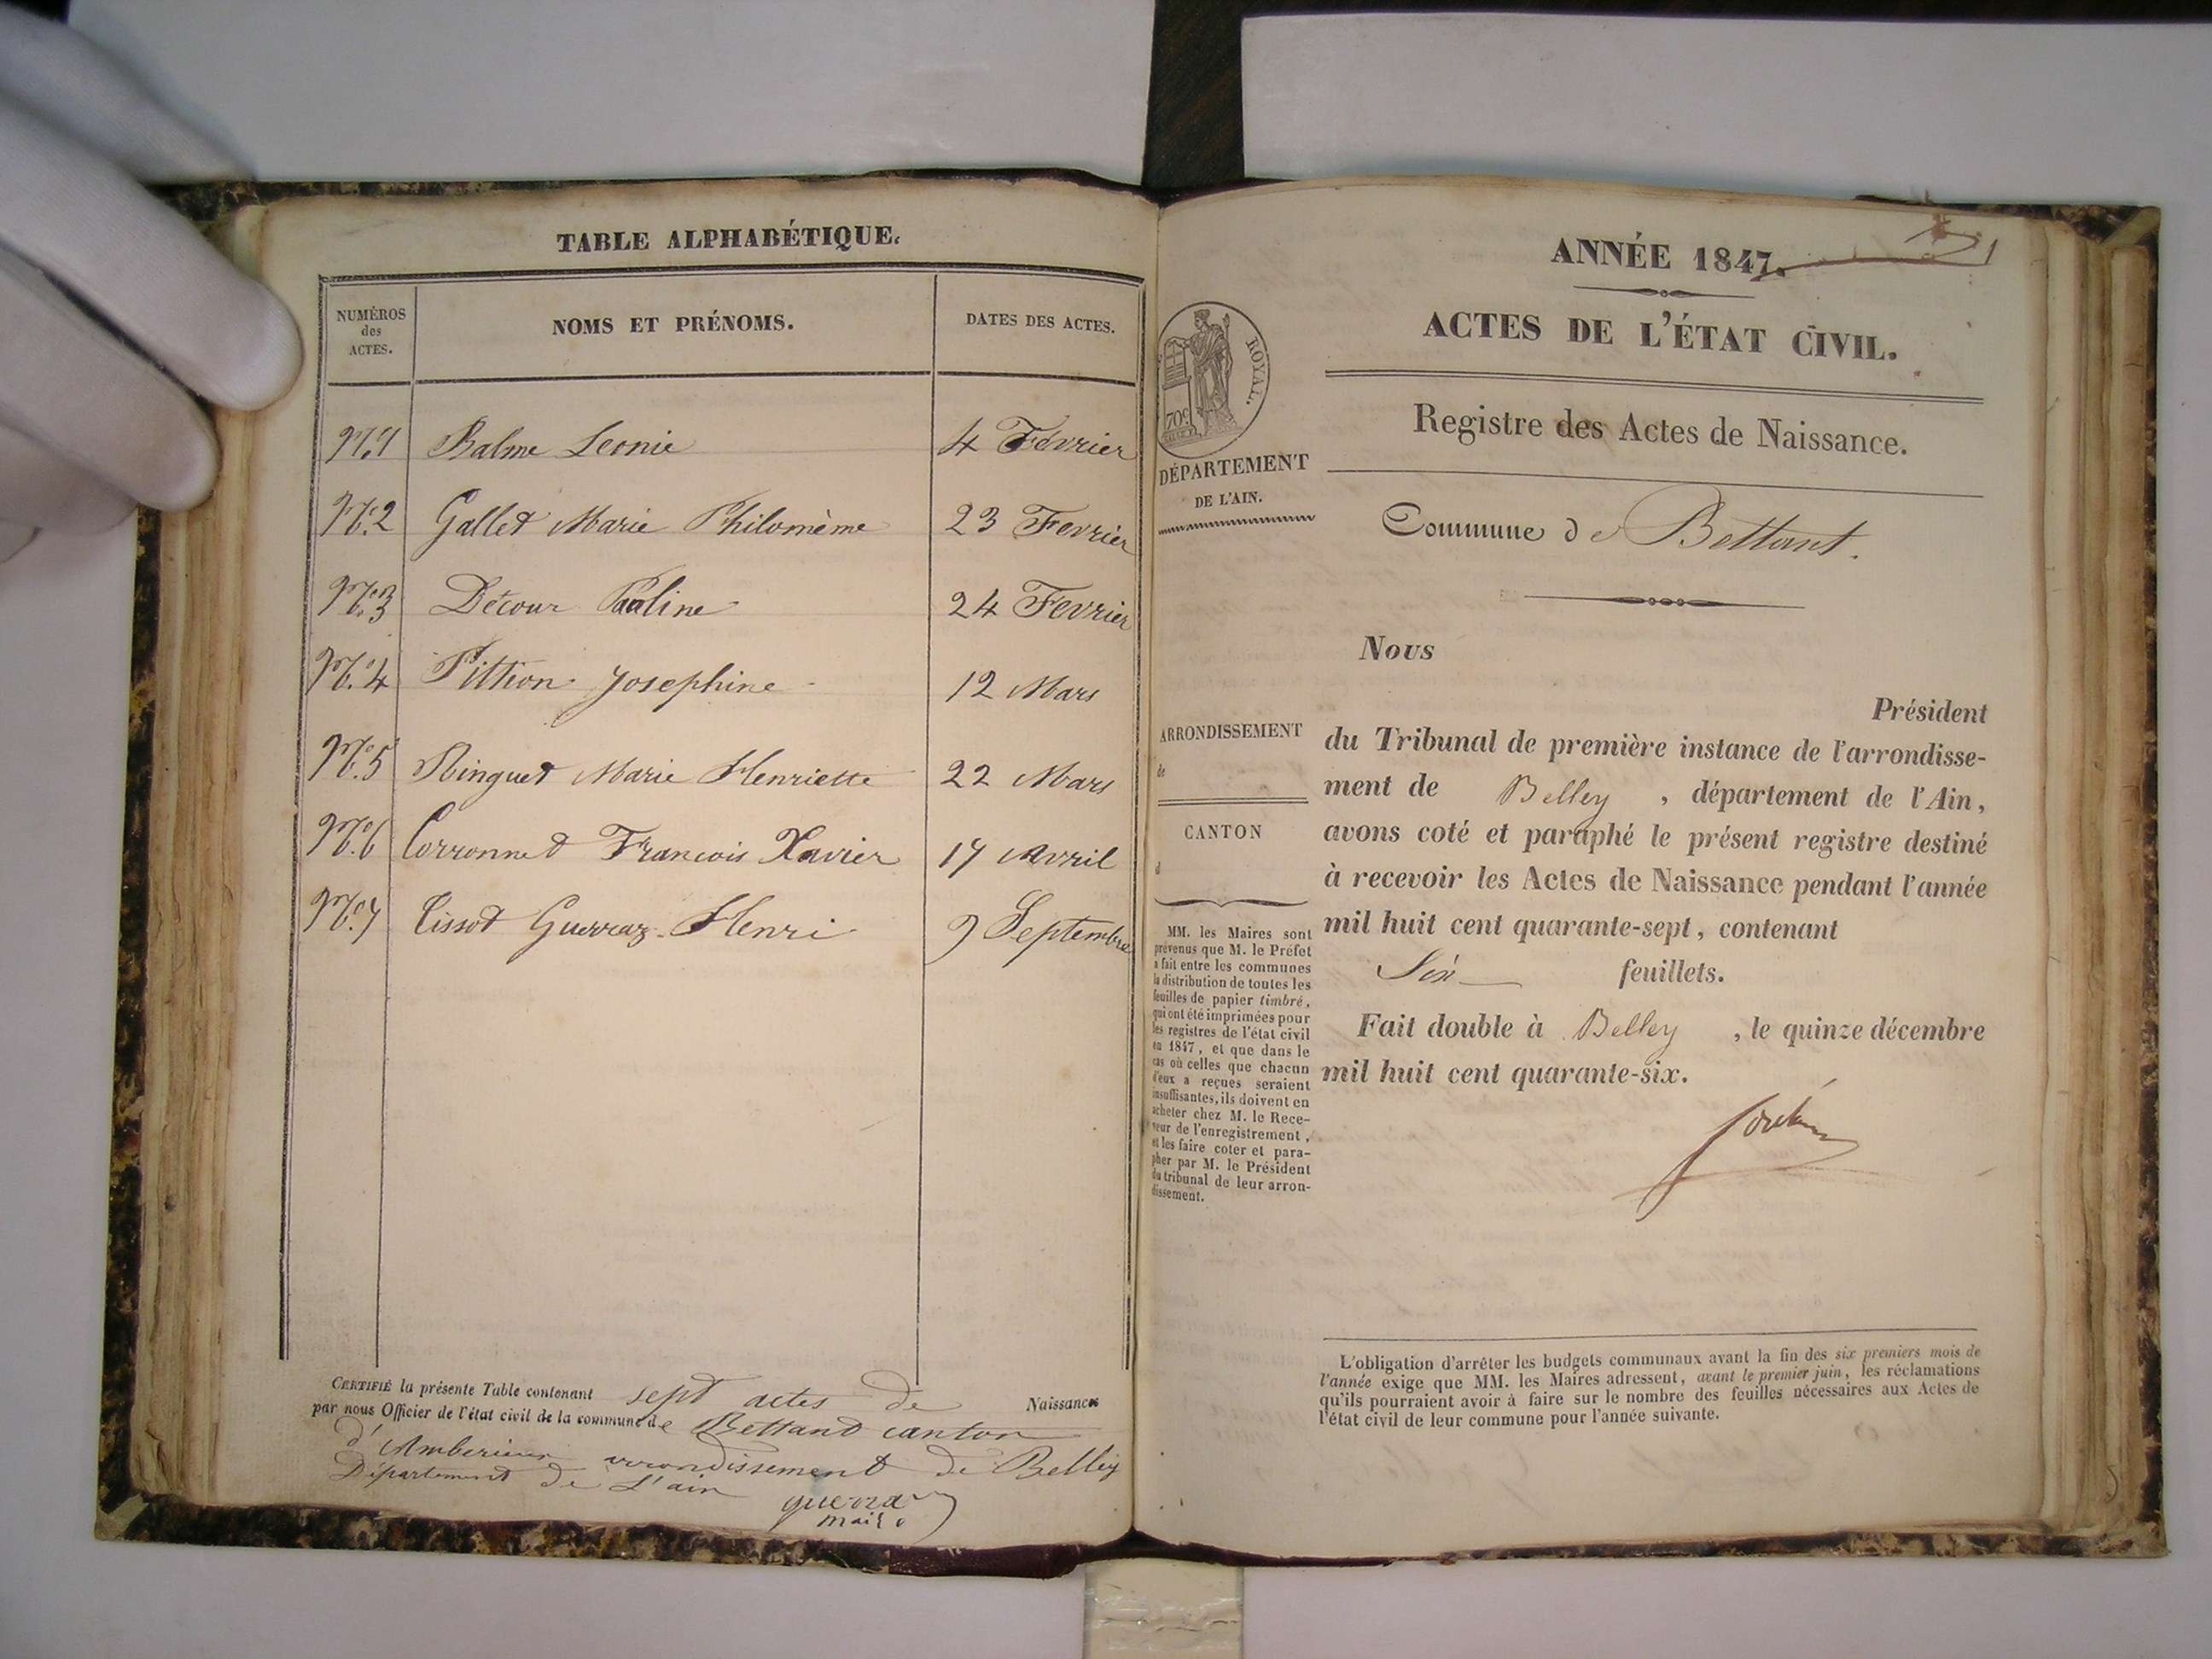 TABLE ALPHABÉTIQUE.
NUMÉROS
des
ACTES.
NOMS ET PRÉNOMS.
DATES DES ACTES.
N.º1 Balme Leonie 4 Fevrier
N.º2 Gallet Marie Philomème 23 Fevrier
N.º3 Décour Paline 24 Fevrier
N.º4 Pittion Josephine 12 Mars
N.º5 Ringuet Marie Henriette 22 Mars
N.º6 Corronnet Francois Xavier 17 Avril
N.º7 Tissot Guerraz Henri 9 Septembre
CERTIFIÉ la présente Table contenant sept actes de Naissances
par nous Officier de l'état civil de la commune de Bettant canton
d'Amberieux arrondissement de Belley
Département de L'ain
guerraz
maire
ANNÉE 1847.
1
ACTES DE L'ÉTAT CIVIL.
Registre des Actes de Naissance.
ROYAL.
70c
DÉPARTEMENT
DE L'AIN.
Commune de Bettant.
Nous
Président
du Tribunal de première instance de l'arrondisse-
ment de Belley, département de l'Ain,
avons coté et paraphé le présent registre destiné
à recevoir les Actes de Naissance pendant l'année
mil huit cent quarante-sept, contenant
Six feuillets.
Fait double à Belley, le quinze décembre
mil huit cent quarante-six.
ARRONDISSEMENT
de
CANTON
d
MM. les Maires sont
prévenus que M. le Préfet
a fait entre les communes
la distribution de toutes les
feuilles de papier timbré,
qui ont été imprimées pour
les registres de l'état civil
en 1847, et que dans le
cas où celles que chacun
d'eux a reçues seraient
insuffisantes, ils doivent en
acheter chez M. le Rece-
veur de l'enregistrement,
et les faire coter et para-
pher par M. le Président
du tribunal de leur arron-
dissement.
L'obligation d'arrêter les budgets communaux avant la fin des six premiers mois de
l'année exige que MM. les Maires adressent, avant le premier juin, les réclamations
qu'ils pourraient avoir à faire sur le nombre des feuilles nécessaires aux Actes de
l'état civil de leur commune pour l'année suivante.